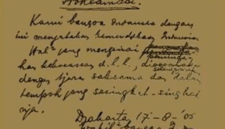 Proklamasi.
Kami bangsa Indonesia dengan
ini menjatakan kemerdekaan Indonesia.
Hal² jang mengenai
kekoeasaan d.l.l., diselenggarakan
dengan tjara saksama dan dalam
tempoh jang sesingkat-singkat
nja.
Djakarta, 17 - 8 - '05